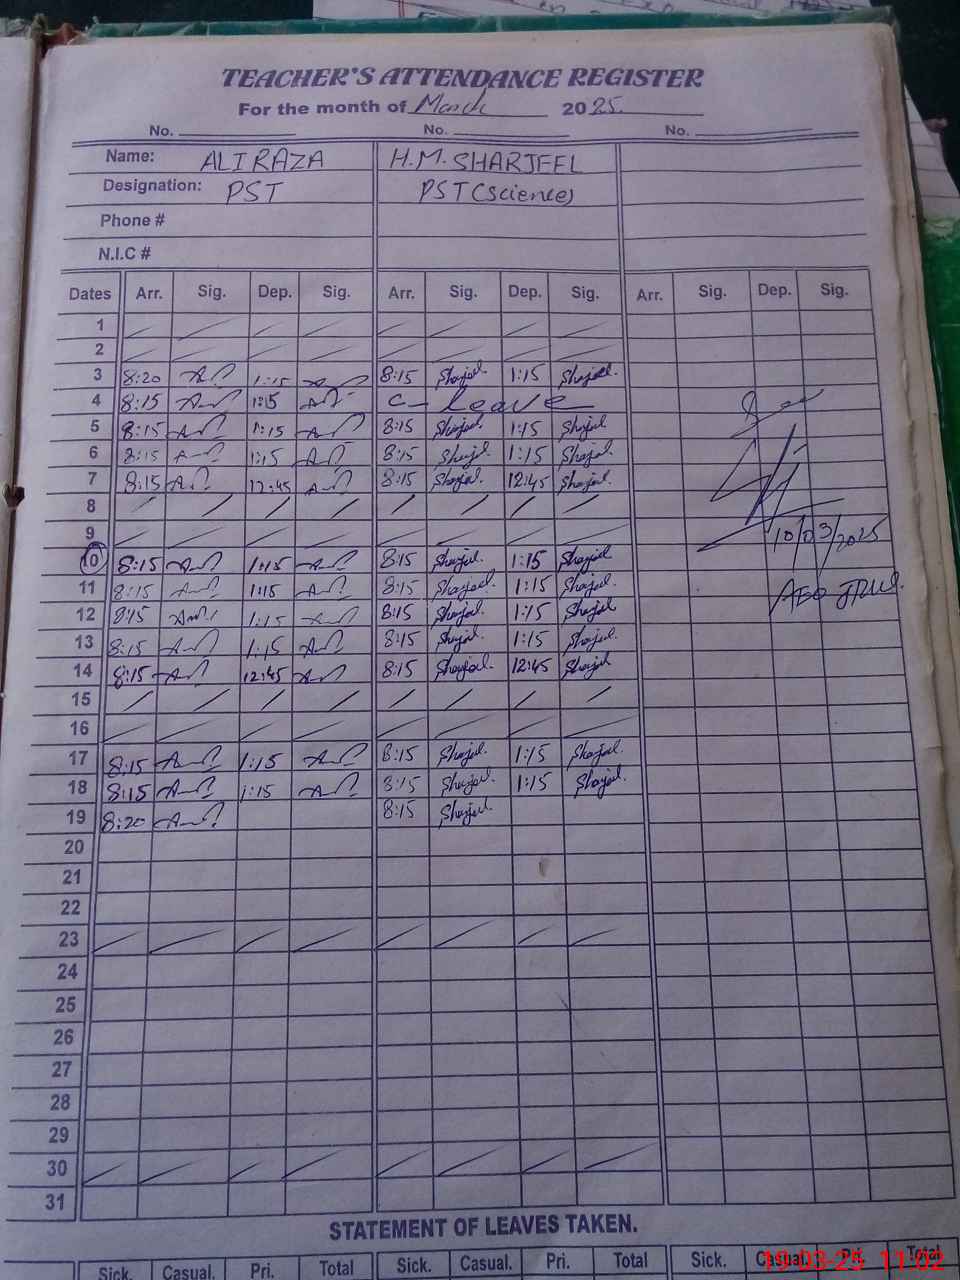 TEACHER'S ATTENDANCE REGISTER
For the month of March 2025.
No. No. No.
Name: ALI RAZA H.M. SHARJEEL
Designation: PST PST (Science)
Phone #
N.I.C #
Dates Arr. Sig. Dep. Sig. Arr. Sig. Dep. Sig. Arr. Sig. Dep. Sig.
1
2
3 8:20 1:15 8:15 Sharjeel 1:15 Sharjeel
4 8:15 1:15 C- Leave
5 8:15 1:15 8:15 Sharjeel 1:15 Sharjeel
6 8:15 1:15 8:15 Sharjeel 1:15 Sharjeel
7 8:15 12:45 8:15 Sharjeel 12:45 Sharjeel
8
9 10/03/2025
10 8:15 1:15 8:15 Sharjeel 1:15 Sharjeel
11 8:15 1:15 8:15 Sharjeel 1:15 Sharjeel AEO
12 8:15 1:15 8:15 Sharjeel 1:15 Sharjeel
13 8:15 1:15 8:15 Sharjeel 1:15 Sharjeel
14 8:15 12:45 8:15 Sharjeel 12:45 Sharjeel
15
16
17 8:15 1:15 8:15 Sharjeel 1:15 Sharjeel
18 8:15 1:15 8:15 Sharjeel 1:15 Sharjeel
19 8:20 8:15 Sharjeel
20
21
22
23
24
25
26
27
28
29
30
31
STATEMENT OF LEAVES TAKEN.
Sick. Casual. Pri. Total Sick. Casual. Pri. Total Sick. Casual. Pri. Total
19-03-25 11:02